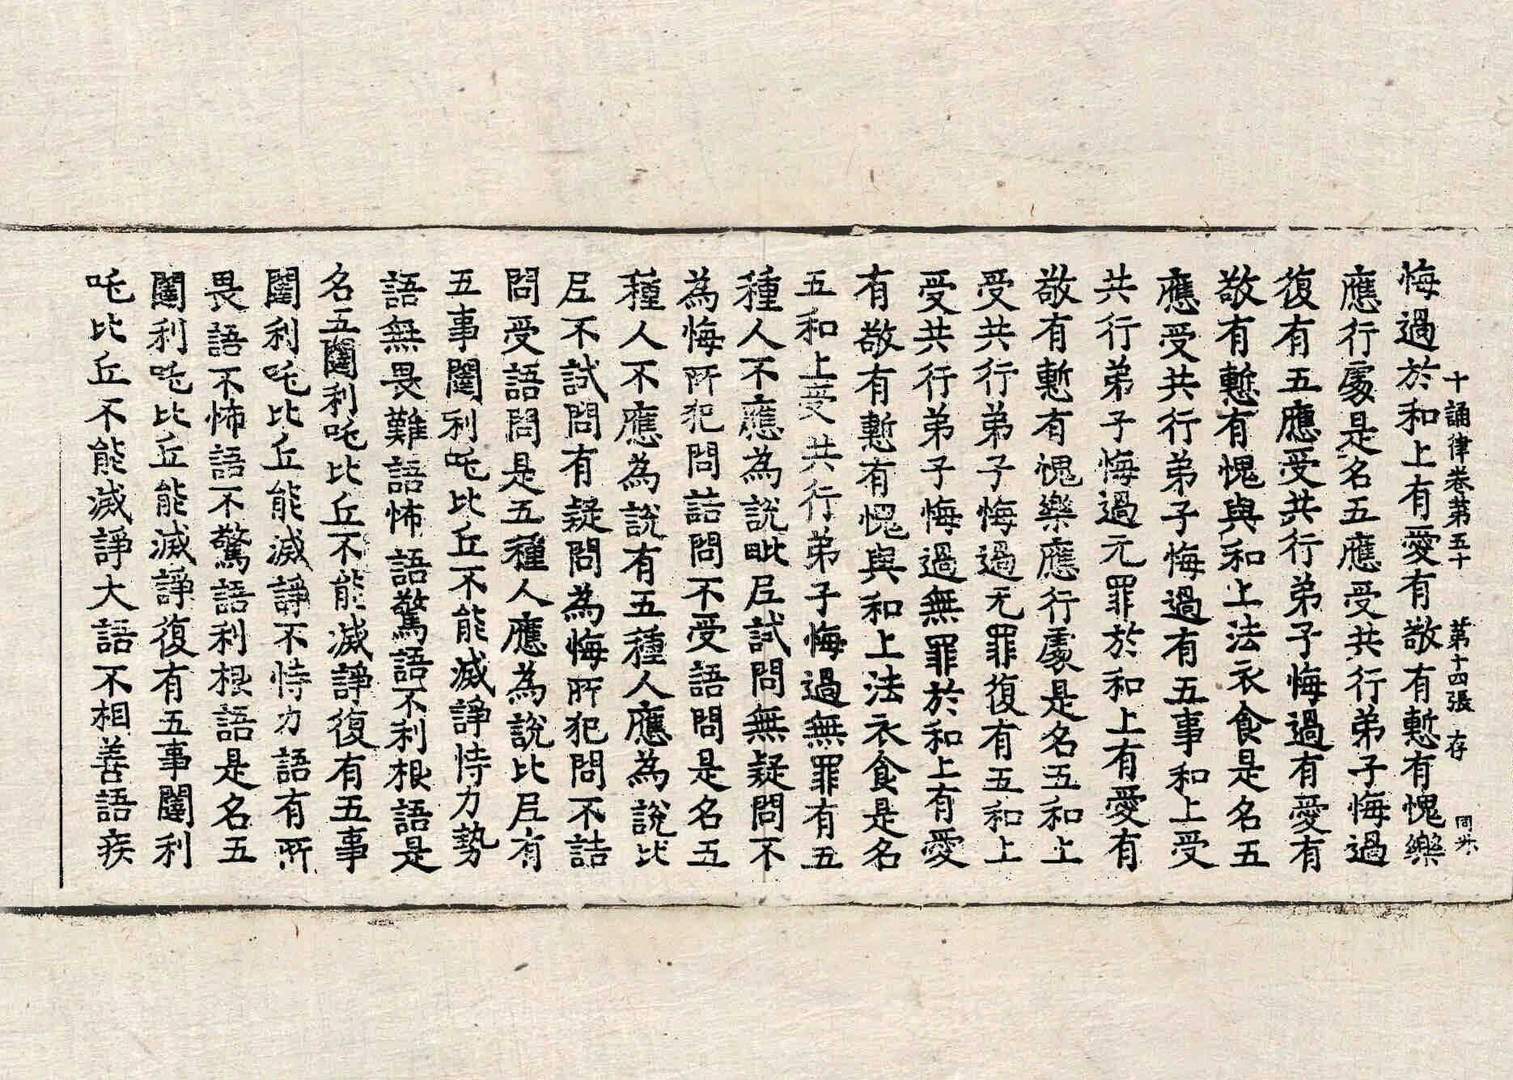 十誦律卷第五十 第十四張 存
悔過於和上有愛有敬有慙有愧樂
應行處是名五應受共行弟子悔過
復有五應受共行弟子悔過有愛有
敬有慙有愧與和上法衣食是名五
應受共行弟子悔過有五事和上受
共行弟子悔過无罪於和上有愛有
敬有慙有愧樂應行處是名五和上
受共行弟子悔過无罪復有五和上
受共行弟子悔過無罪於和上有愛
有敬有慙有愧與和上法衣食是名
五和上受共行弟子悔過無罪有五
種人不應為說毗尼試問無疑問不
為悔所犯問詰問不受語問是名五
種人不應為說有五種人應為說比
尼不試問有疑問為悔所犯問不詰
問受語問是五種人應為說比尼有
五事闥利吒比丘不能滅諍恃力勢
語無畏難語怖語驚語不利根語是
名五闥利吒比丘不能滅諍復有五事
闥利吒比丘能滅諍不恃力語有所
畏語不怖語不驚語利根語是名五
闥利吒比丘能滅諍復有五事闥利
吒比丘不能滅諍大語不相善語疾